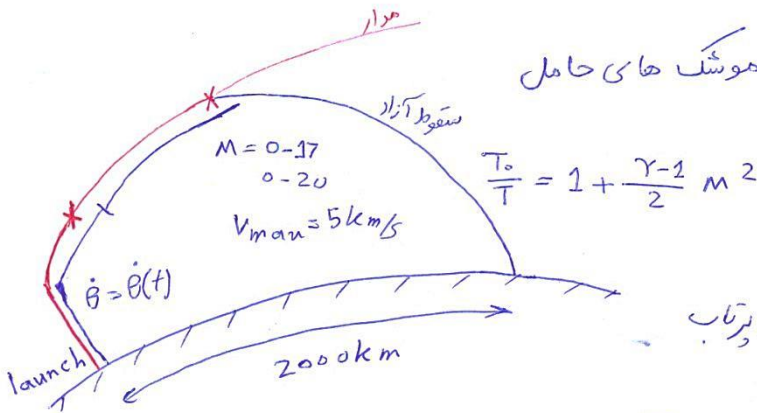 مدار
موشک های حامل
سقوط آزاد
M = 0-17
0-20
T₀/T = 1 + (γ-1)/2 M²
Vmax = 5 km/s
θ̇ = θ̇(t)
پرتاب
launch
2000km